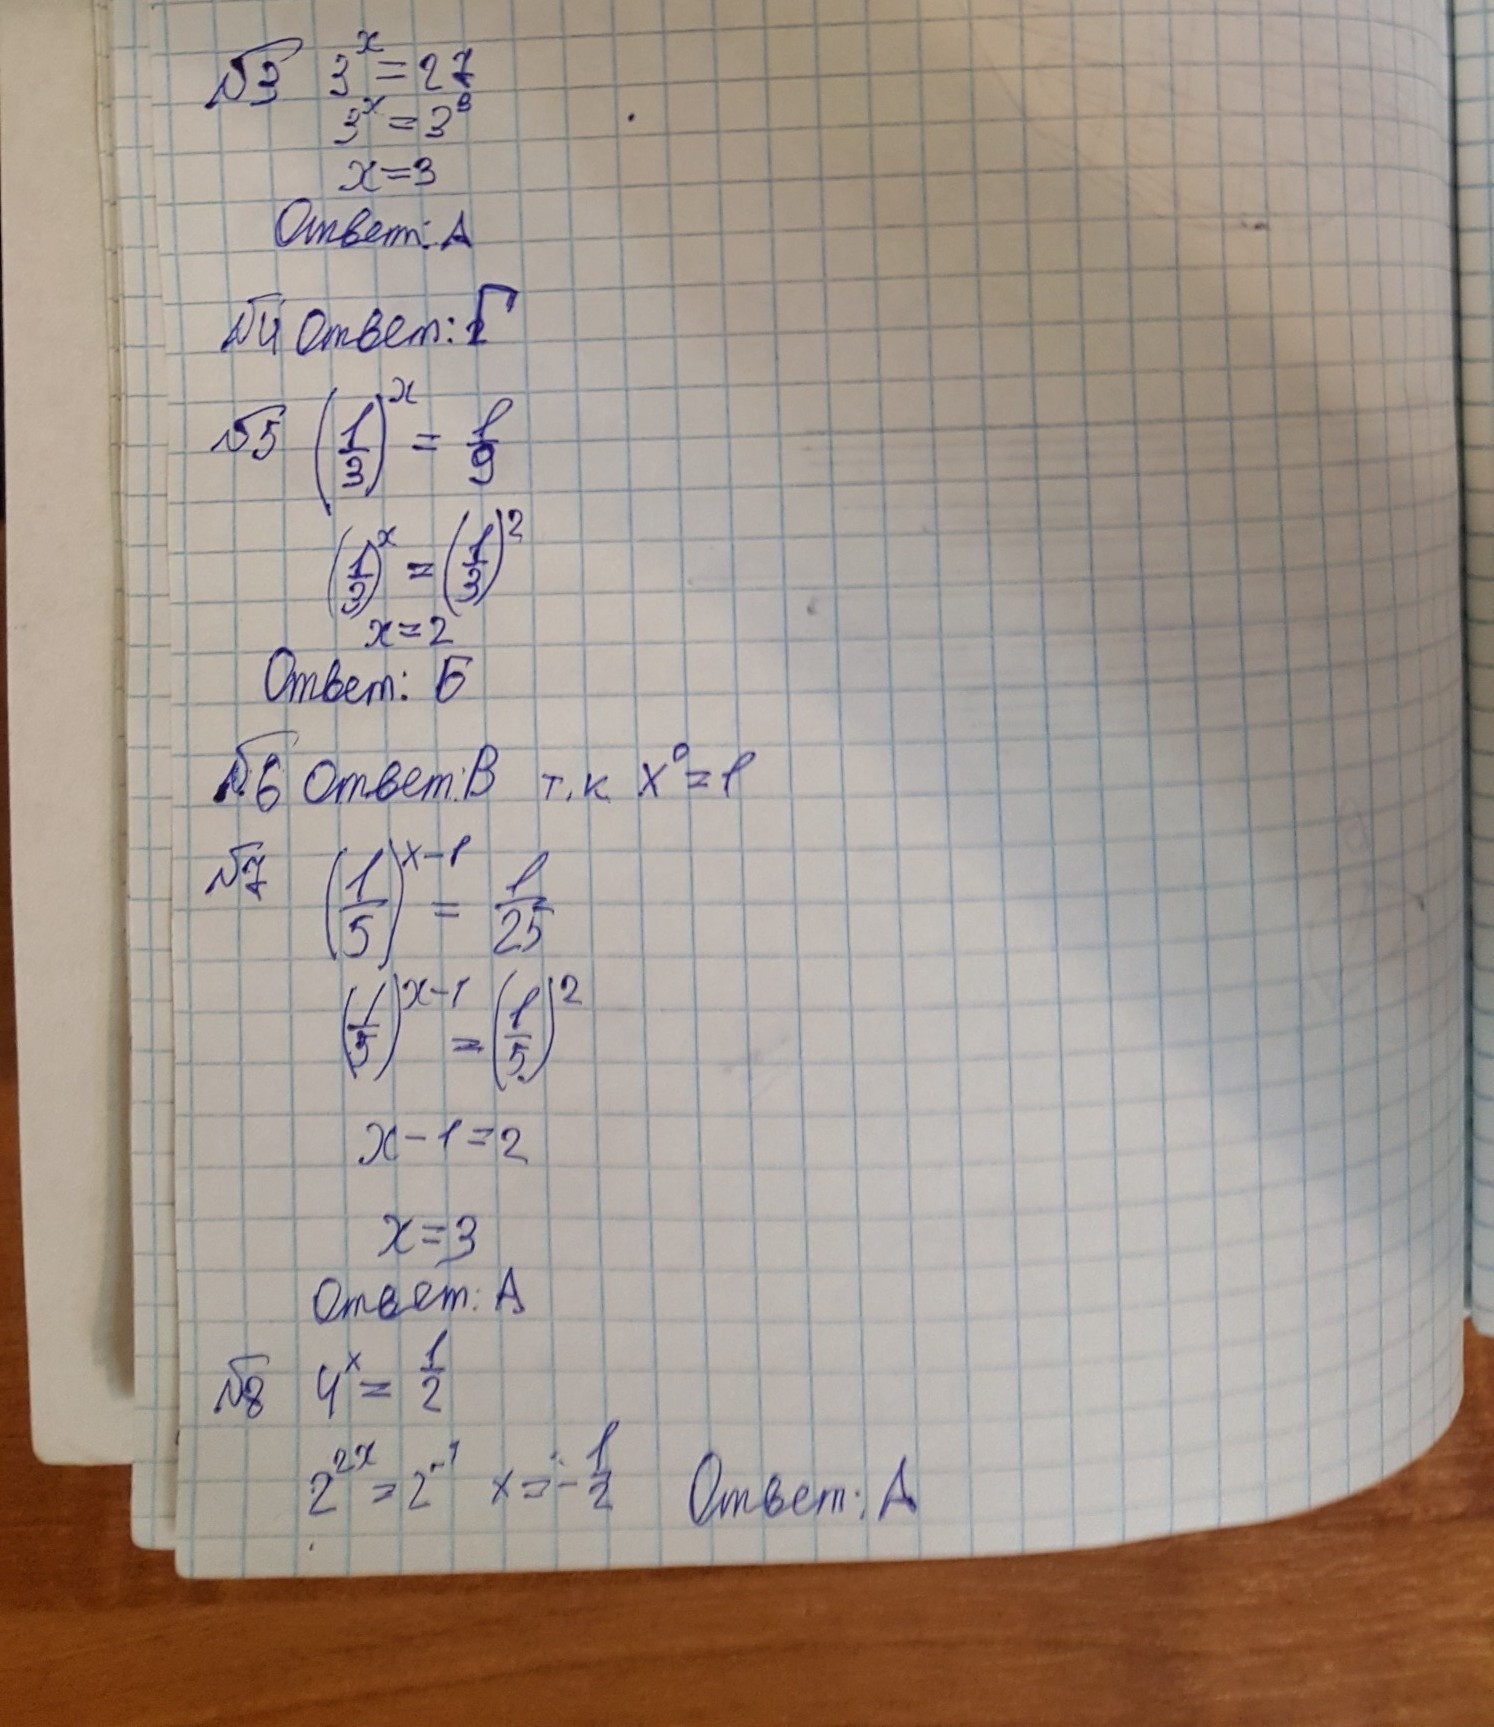 №3 3^x = 27
3^x = 3^3
x = 3
Ответ: А
№4 Ответ: Г
№5 (1/3)^x = 1/9
(1/3)^x = (1/3)^2
x = 2
Ответ: Б
№6 Ответ: В т.к x^0 = 1
№7 (1/5)^(x-1) = 1/25
(1/5)^(x-1) = (1/5)^2
x - 1 = 2
x = 3
Ответ: А
№8 4^x = 1/2
2^(2x) = 2^(-1) x = -1/2 Ответ: А